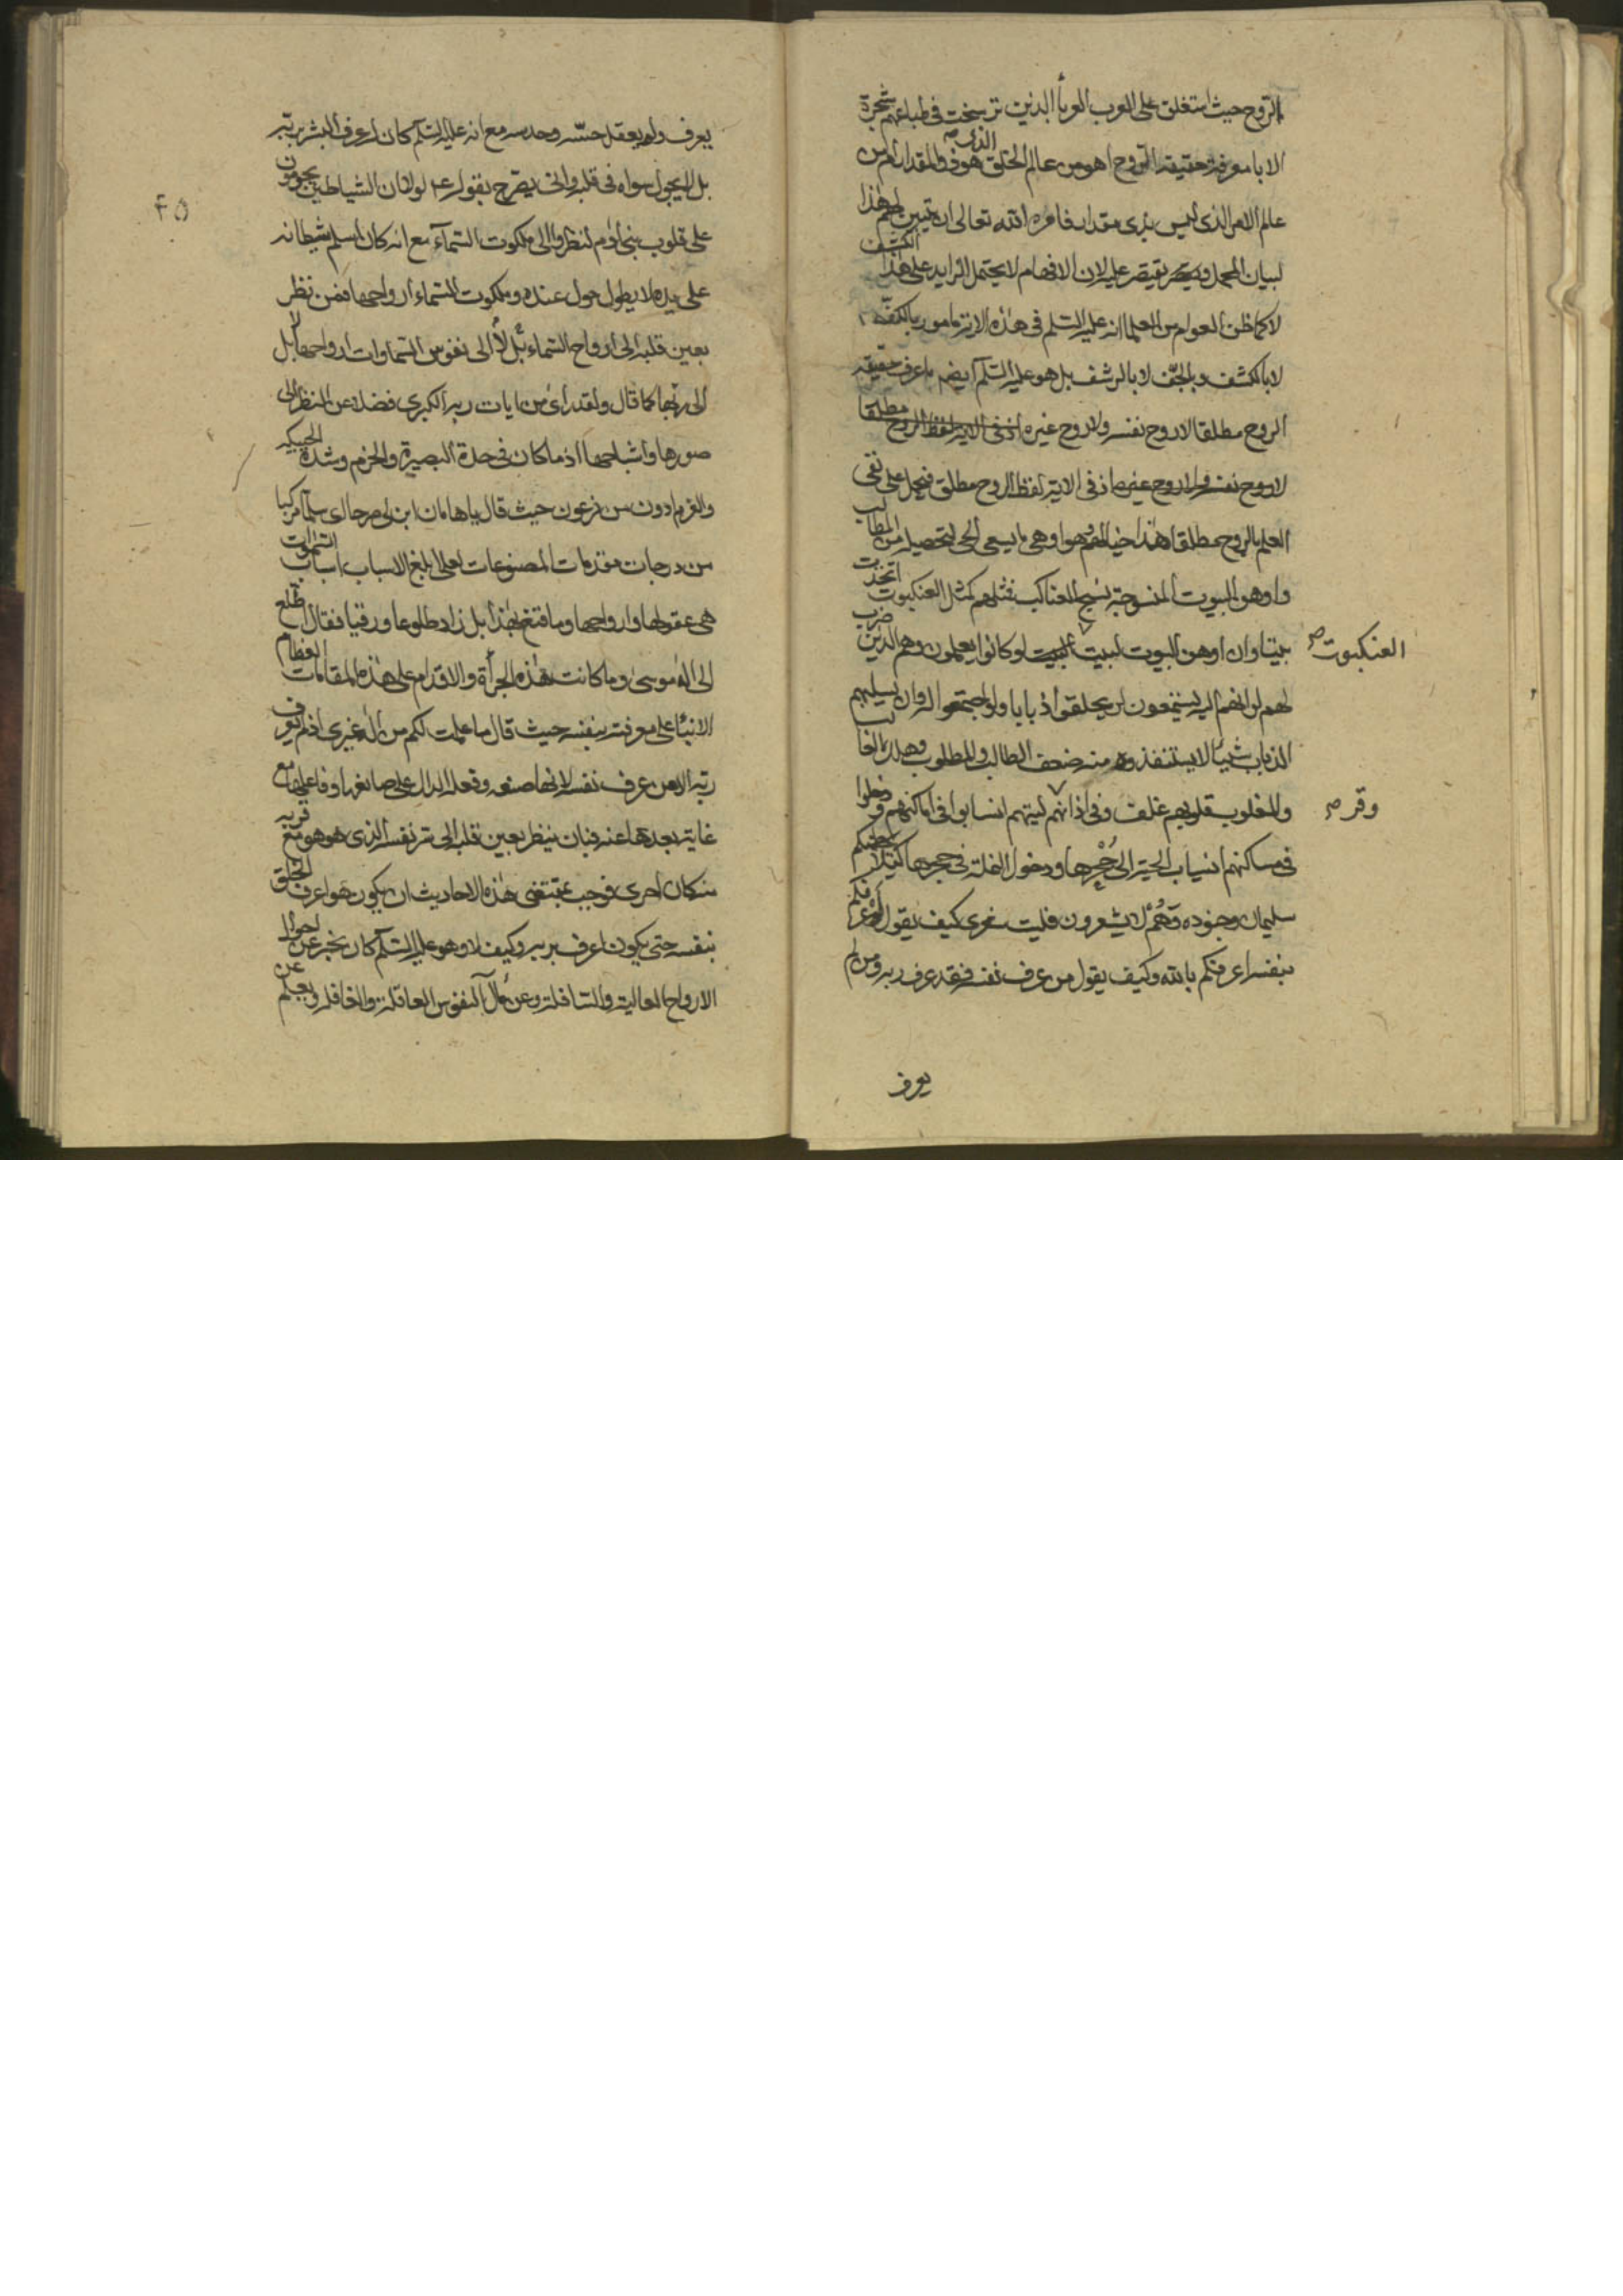 الروح حيث استغلق على العرب العرباء الذين ترسخت في طباعهم شجرة
الابا معرفة حقيقة الروح اهو من عالم الخلق الذي هو ذو المقدار ام من
عالم الامر الذي ليس بذي مقدار فامره الله تعالى ان يبين لهم هذا
لبيان المجمل ويقتصر عليه لان الافهام لا يحتمل الزايد على هذا الكشف
لا كما ظن العوام من العلما انه عليه السلم في هذه الاية مامور بالكف
لا بالكشف وبالجف لا بالرشف بل هو عليه السلم ايضا ما عرف حقيقة
الروح مطلقا لا روح نفسه ولا روح غيره اذ في الاية لفظ الروح مطلقا
لا روح نفسه ولا روح غيره اذ في الاية لفظ الروح مطلق فيحمل على نفى
العلم بالروح مطلقا هذا خيالهم وهو اوهى ما يسعى الحى لتحصيله من المطالب
واوهن البيوت المنسوجة نسج العناكب فمثلهم كمثل العنكبوت اتخذت
بيتا وان اوهن البيوت لبيت العنكبوت لو كانوا يعلمون وهم الذين ضرب
لهم لو انهم اليه يستمعون لن يخلقوا ذبابا ولو اجتمعوا له وان يسلبهم
الذباب شيئا لا يستنقذوه منه ضعف الطالب والمطلوب وهلك الغالب
والمغلوب قلوبهم غلف وفى اذانهم وقر ليتهم انسابوا فى اماكنهم ودخلوا
فى مساكنهم انسياب الحية الى جحرها ودخول النملة فى حجرها كيلا يحطمنكم
سليمان وجنوده وهم لا يشعرون فليت شعرى كيف يقول اعرفكم
بنفسه اعرفكم بالله وكيف يقول من عرف نفسه فقد عرف ربه ومن لم
العنكبوت صح
وقر صح
يعرف
٤٥
يعرف ولم يعقل حسه وحدسه مع انه عليه السلم كان اعرف البشر بربه
بل لا يجول سواه فى قلبه وانى يصرح بقوله ع م لولا ان الشياطين يحومون
على قلوب بنى ادم لنظروا الى ملكوت السماء مع انه كان اسلم شيطانه
على يده لا يطول حول عنده وملكوت السماء ارواحها فمن نظر
بعين قلبه الى ارواح السماء بل لا الى نفوس السماوات ارواحها لا بل
الى ربها كما قال ولقد راى من ايات ربه الكبرى فضلا عن النظر الى
صورها واشباحها اذ ما كان فى حدة البصيرة والحزم وشدة
والعزم ادون من فرعون حيث قال يا هامان ابن لى صرحا اى سلما مركبا
من درجات مقدمات المصنوعات لعلى ابلغ الاسباب اسباب السموات
هى عقولها وارواحها وما قنع بهذا بل زاد طلوعا ورقيا فقال اطلع
الى اله موسى وما كانت هذه الجراة والاقدام على هذه المقامات العظام
الا بناء على معرفته بنفسه حيث قال ما علمت لكم من اله غيرى اذ لم يعرف
ربه الا من عرف نفسه لانها صنعه وفعله الدال على صانعها وفاعلها مع
غاية بعدها عنه فبان ينظر بعين قلبه الى سر نفسه الذى هو هو مع قربه
منه كان احرى فوجب بمقتضى هذه الاحاديث ان يكون هو اعرف الخلق
بنفسه حتى يكون اعرف بربه وكيف لا وهو عليه السلم كان يخبر عن احوال
الارواح العالية والسافلة وعن مآل النفوس العاقلة والغافلة ويعلم عن